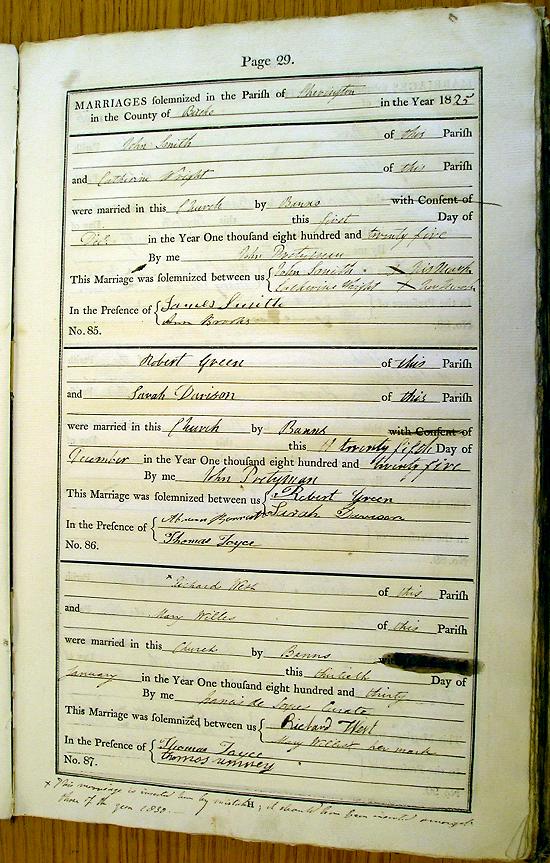 Page 29.
MARRIAGES solemnized in the Parish of
in the County of Bucks in the Year 1825
John Smith of this Parish
and Catherine Wright of this Parish
were married in this Church by Banns with Consent of
this first Day of
in the Year One thousand eight hundred and twenty five
By me John Pretyman
This Marriage was solemnized between us John Smith X his Mark
Catherine Wright X her Mark
In the Presence of James Smith
Ann Brooks
No. 85.
Robert Green of this Parish
and Sarah Davison of this Parish
were married in this Church by Banns with Consent of
this twenty fifth Day of
December in the Year One thousand eight hundred and twenty five
By me John Pretyman
This Marriage was solemnized between us Robert Green
Sarah Davison
In the Presence of Bennett
Thomas Joyce
No. 86.
x Richard West of this Parish
and Mary Willes of this Parish
were married in this Church by Banns
this thirtieth Day of
January in the Year One thousand eight hundred and thirty
By me Curate
This Marriage was solemnized between us Richard West
Mary her mark
In the Presence of Thomas Joyce
thomos
No. 87.
H
x This marriage is inserted here by mistake; it should have been inserted amongst
those of the year 1830.